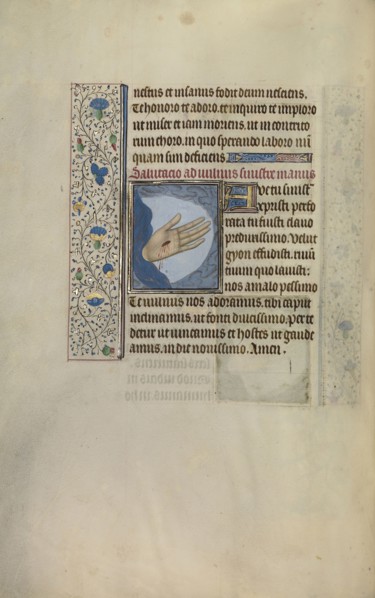 nescius et insanus fodit deum nesciens.
Te honoro te adoro. te inquiro te imploro
ut miser et iam moriens. ut in contrito
tuum choro. in quo sperando laboro
quam sim deficiens.
Salutacio ad vulnus sinistre manus
Ave tu sinist
xpristi perfo
rata tu fuisti clavo
predurissimo. velut
gyon effudisti.
quo lavisti:
nos amalo pessimo
Te vulnus nos adoramus. tibi caput
inclinamus. ut fonti dulcissimo. per te
detur ut vincamus et hostes ut gaude
amus. in die novissimo. Amen.